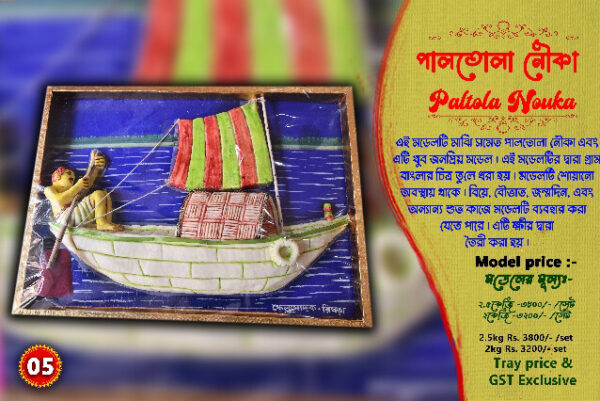 পালতোলা নৌকা
Paltola Nouka
এই মডেলটি মাঝি সমেত পালতোলা নৌকা এবং
এটি খুব জনপ্রিয় মডেল । এই মডেলটির দ্বারা গ্রাম
বাংলার চিত্র তুলে ধরা হয় । মডেলটি শোয়ানো
অবস্থায় থাকে । বিয়ে, বৌভাত, জন্মদিন, এবং
অন্যান্য শুভ কাজে মডেলটি ব্যবহার করা
যেতে পারে । এটি ক্ষীর দ্বারা
তৈরী করা হয় ।
Model price :-
মডেলের মূল্যঃ-
২.৫কেজি -৩৮০০/- /সেট
২কেজি -৩২০০/- /সেট
2.5kg Rs. 3800/- /set
2kg Rs. 3200/- set
Tray price &
GST Exclusive
05